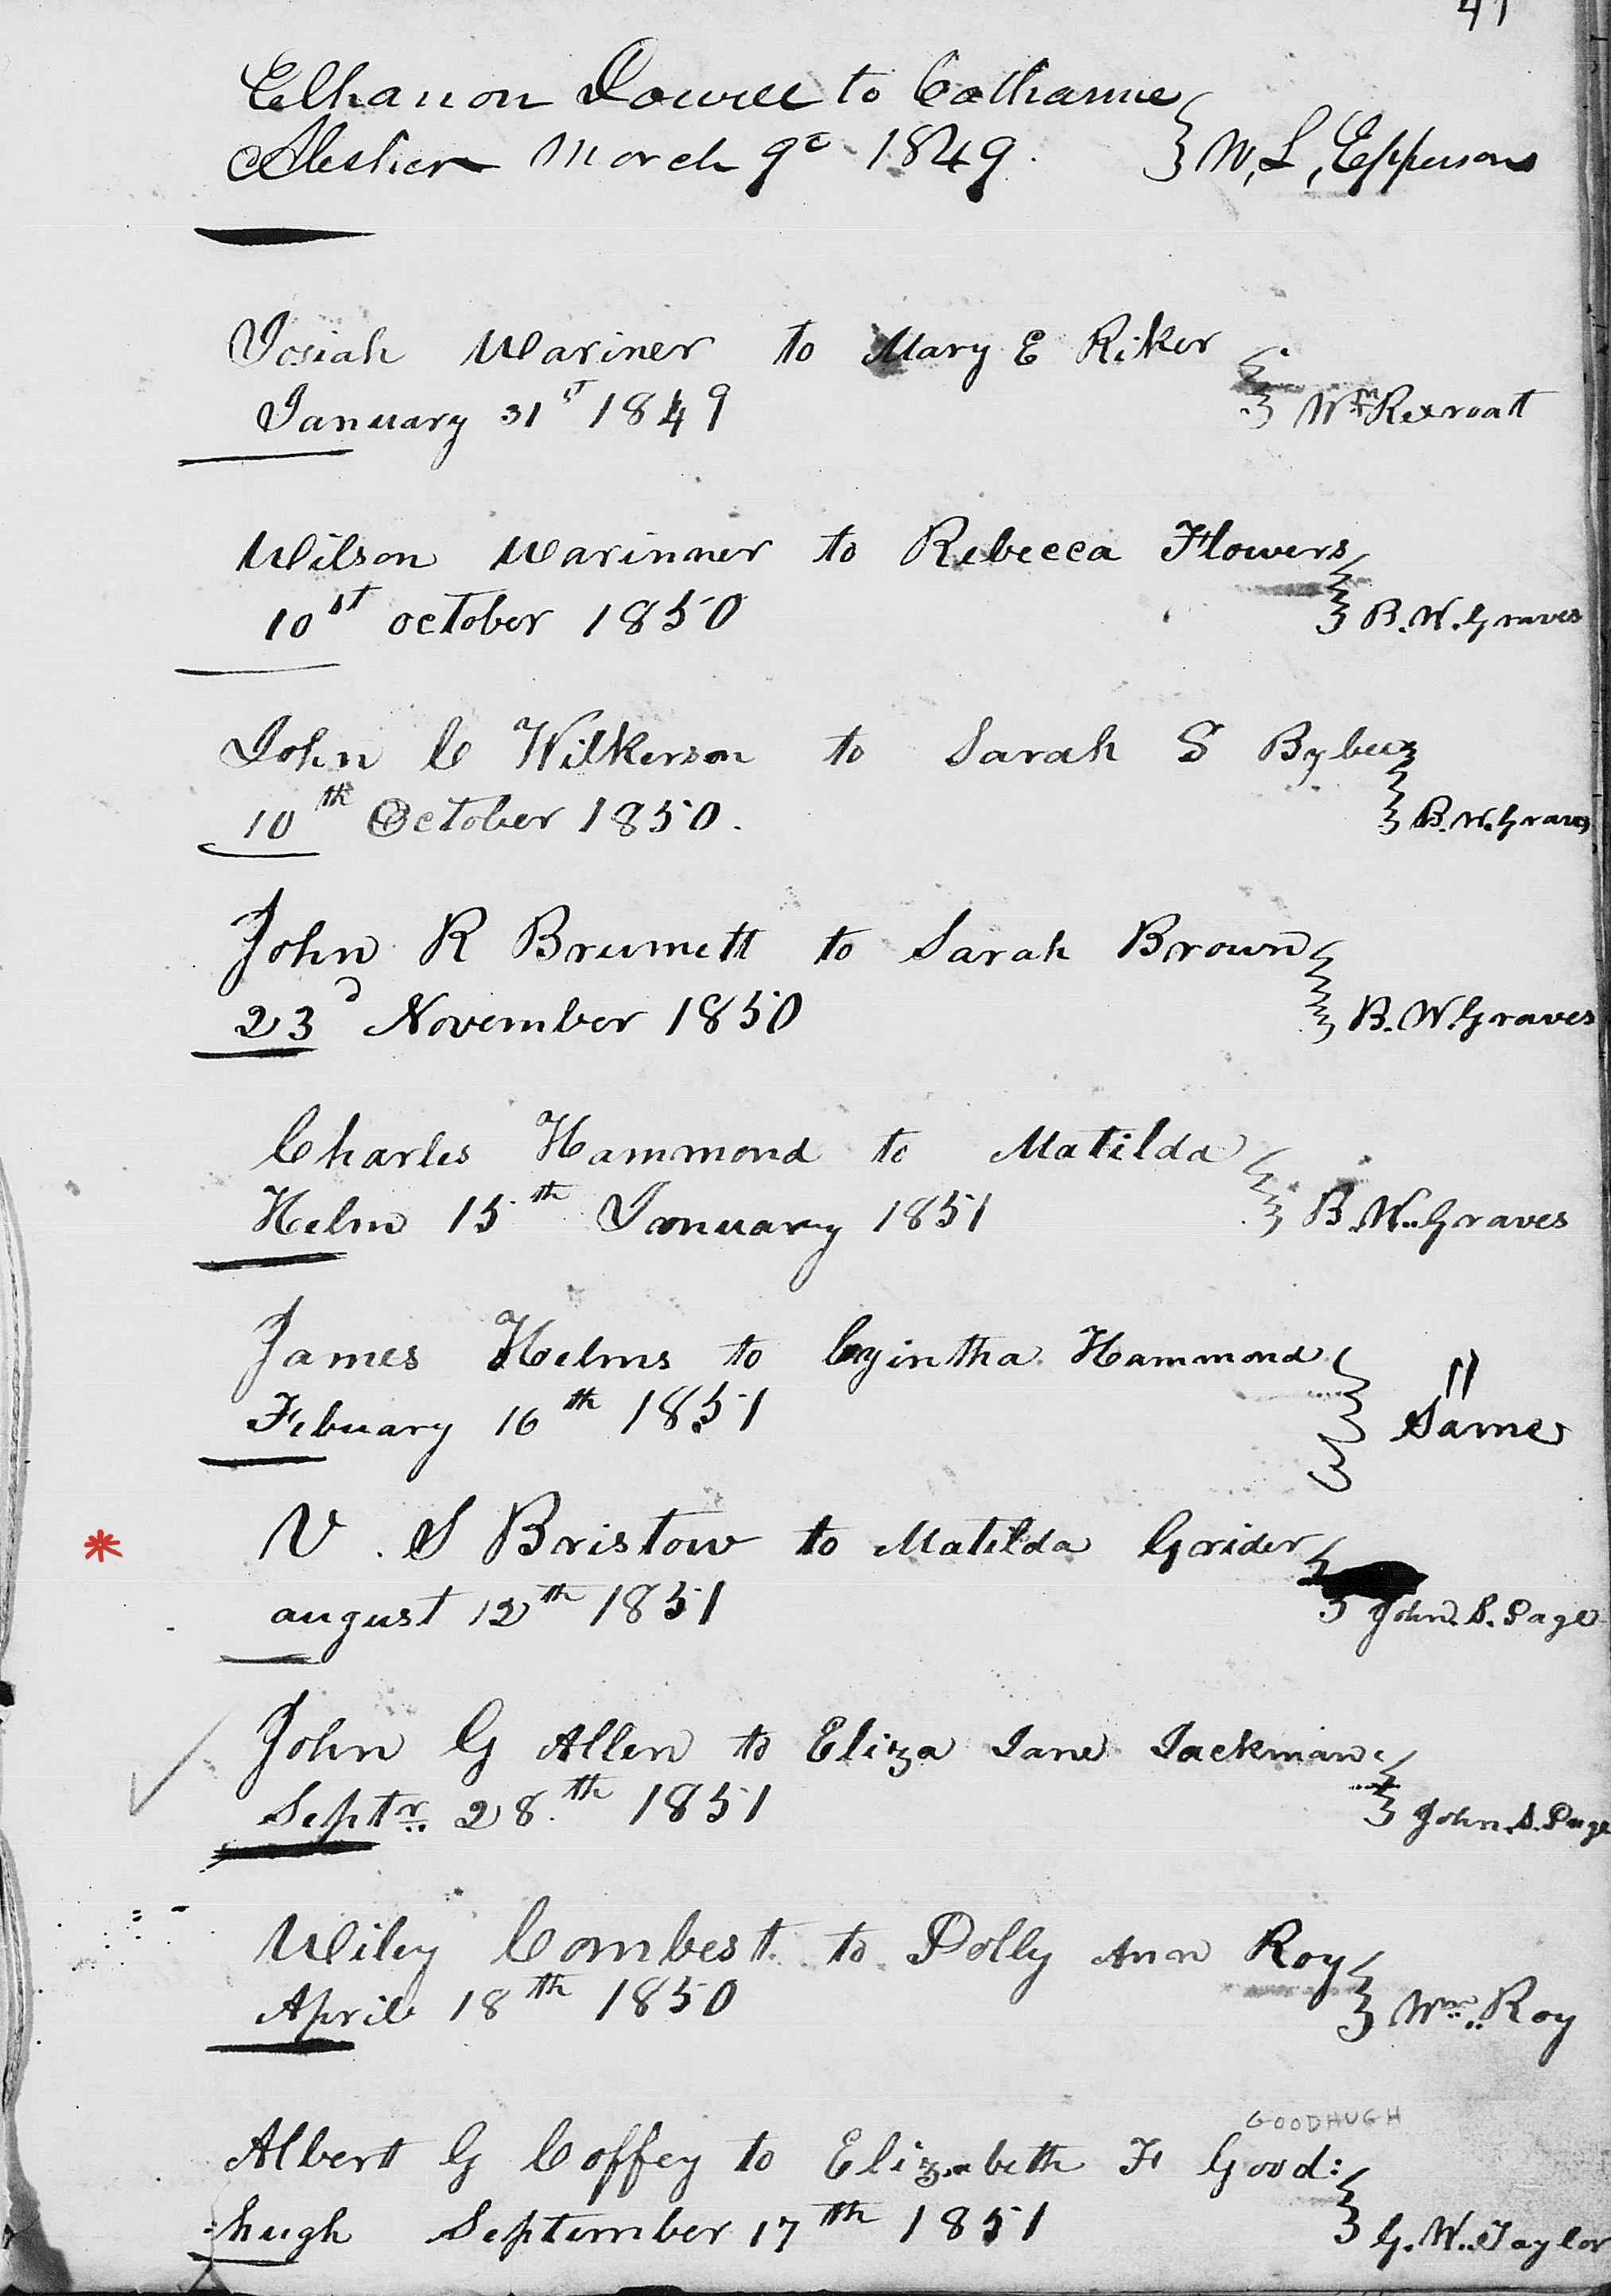 41
Elhanon Dowell to Catharine
March 9th 1849. W. L, Epperson
Josiah Wariner to Mary E Riker
January 31st 1849 Wm Rexroatt
Wilson Warinner to Rebecca Flowers
10st october 1850 B. W. Graves
John C Wilkerson to Sarah S Bybee
10th October 1850. B. W. Graves
John R Brumett to Sarah Brown
23d November 1850 B. W. Graves
Charles Hammond to Matilda
Helm 15th January 1851 B. W. Graves
James Helms to Cyintha Hammond "
Febuary 16th 1851 Same
V. S Bristow to Matilda Grider
august 12th 1851 John. S. Page
John G Allen to Eliza Jane Jackman
Septr. 28th 1851 John. S. Page
Wiley Combest to Polly Ann Roy
April 18th 1850 Wm. Roy
GOODHUGH
Albert G Coffey to Elizabeth F Good:
hugh September 17th 1851 G. W. Taylor